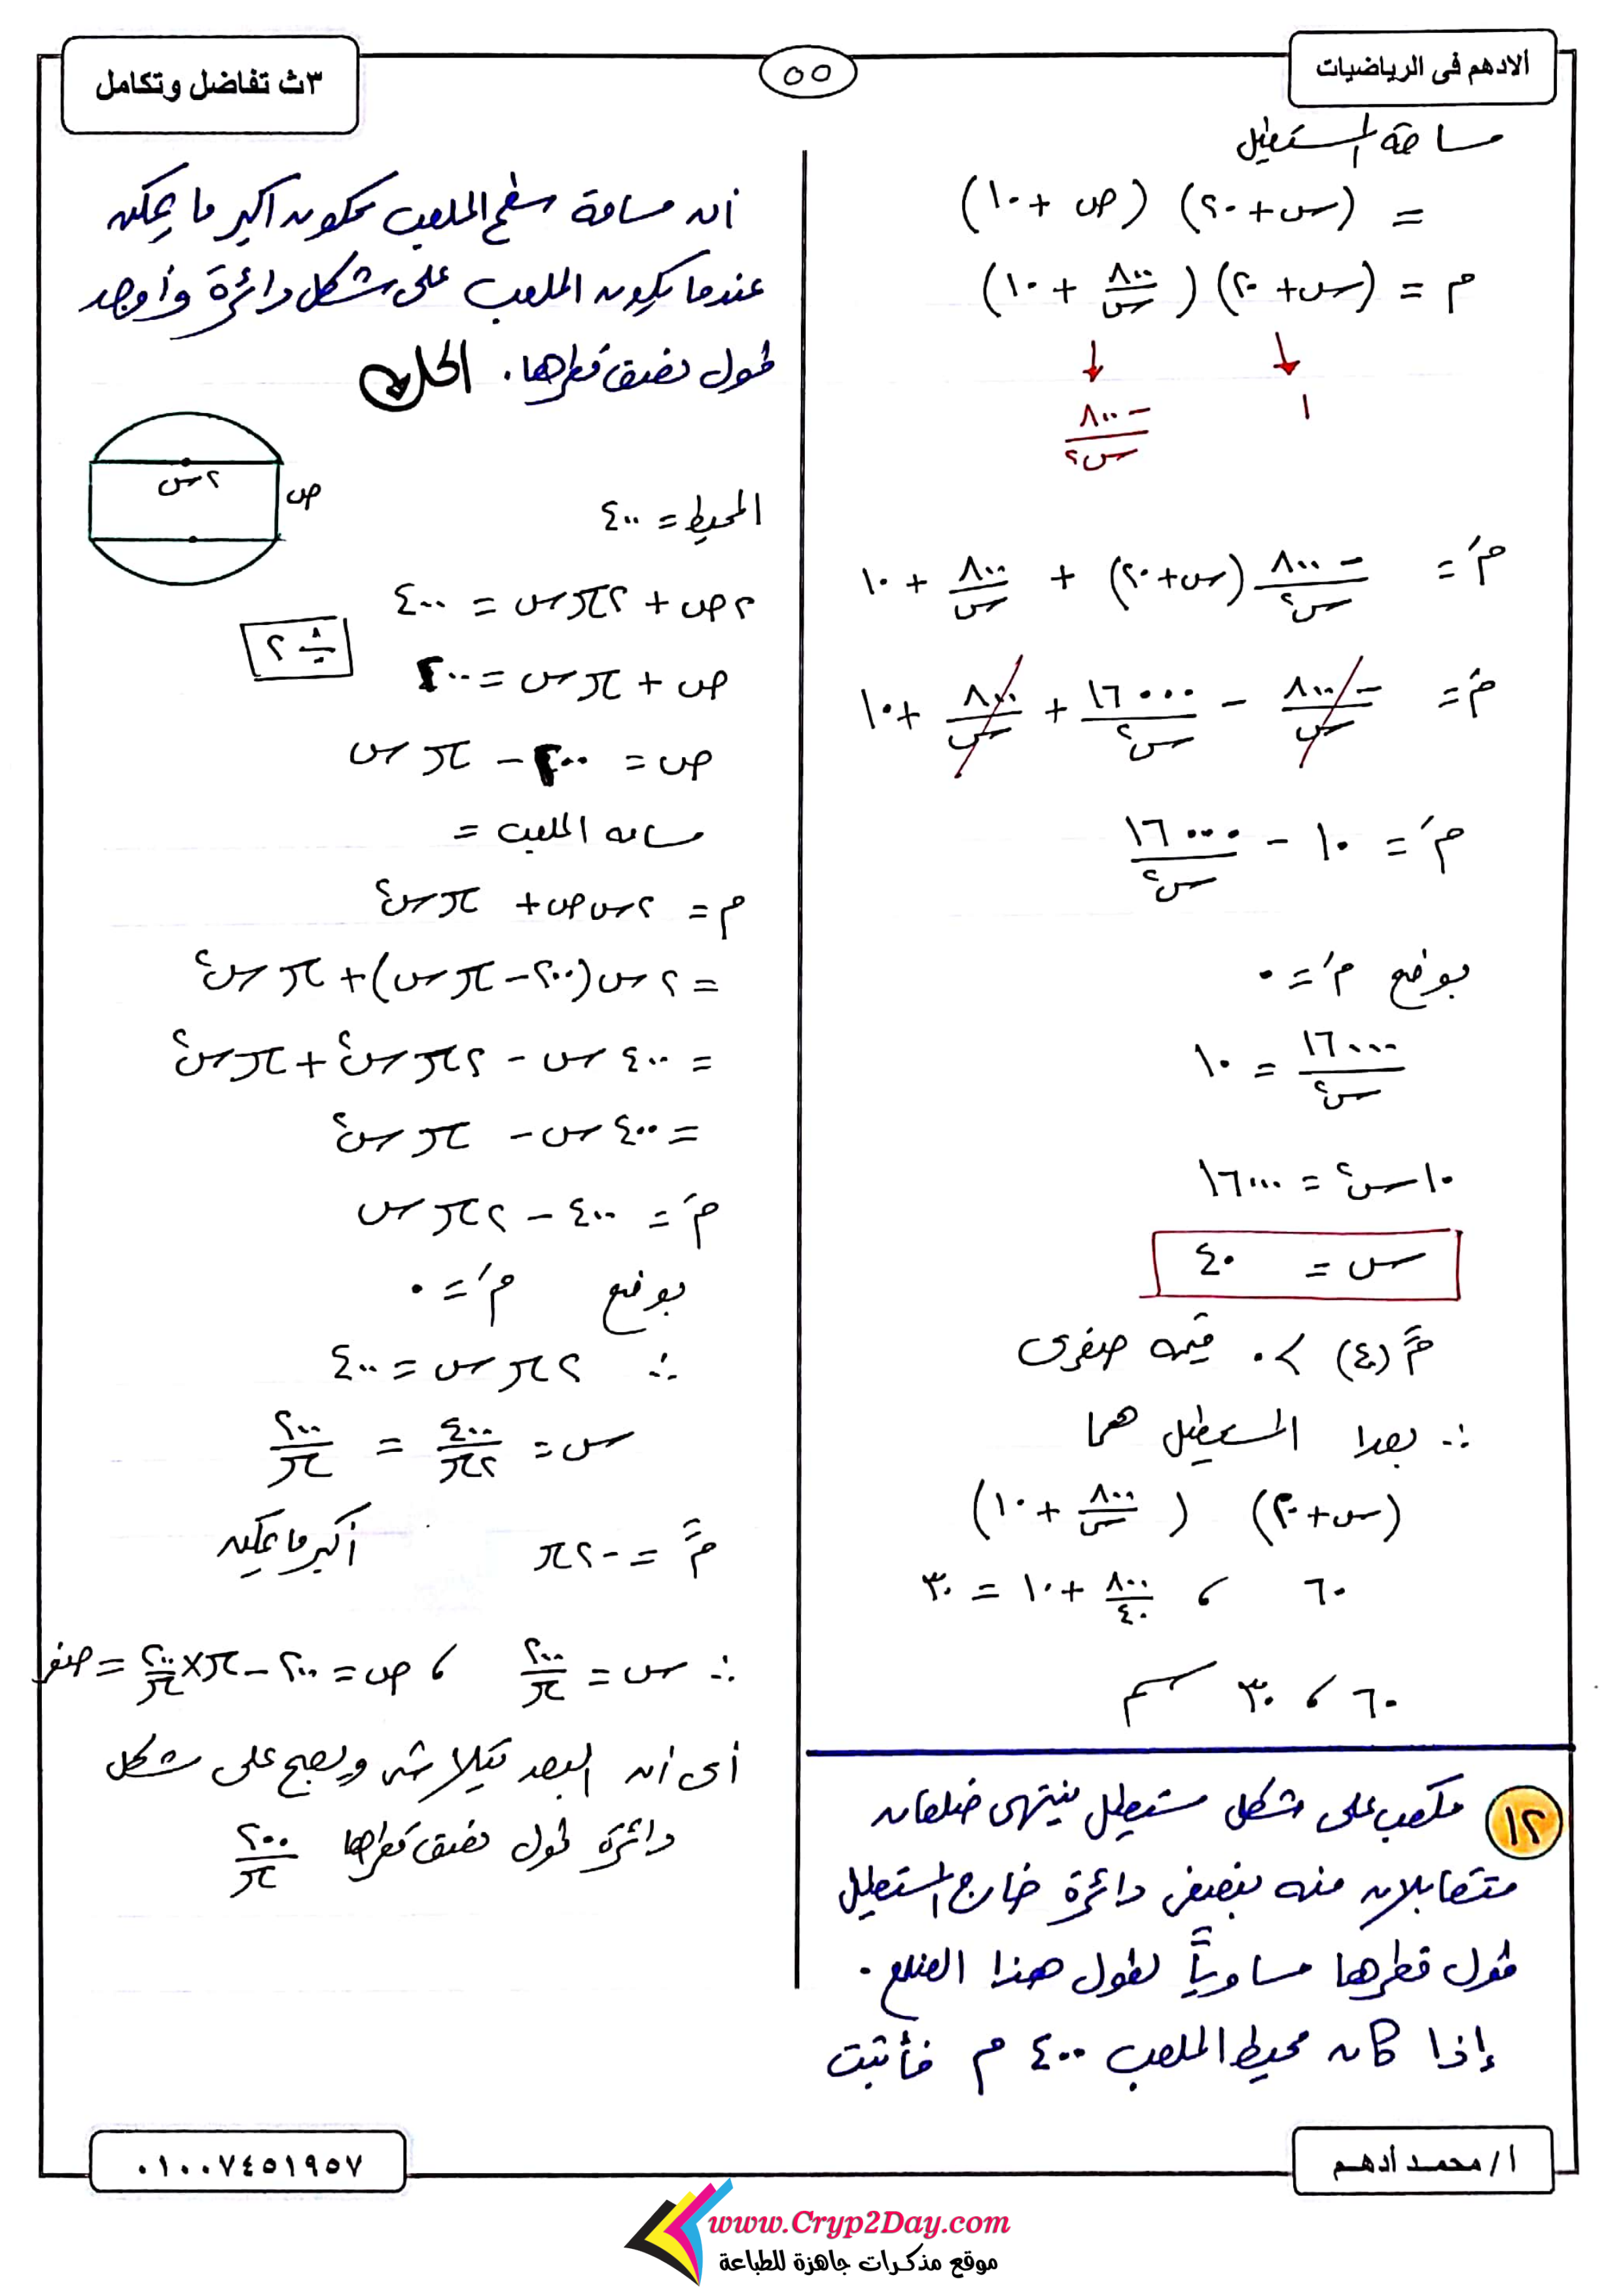 الادهم فى الرياضيات
٥٥
٣ث تفاضل وتكامل
مساحة المستطيل
= (س + ٢٠) (ص + ١٠)
م = (س + ٢٠) (٨٠٠/س + ١٠)
١
-٨٠٠/س٢
مَ = -٨٠٠/س٢ (س + ٢٠) + ٨٠٠/س + ١٠
مَ = -٨٠٠/س - ١٦٠٠٠/س٢ + ٨٠٠/س + ١٠
مَ = ١٠ - ١٦٠٠٠/س٢
بوضع مَ = ٠
١٦٠٠٠/س٢ = ١٠
١٠ س٢ = ١٦٠٠٠
س = ٤٠
مً (٤٠) > ٠ قيمة صغرى
∴ بعدا المستطيل هما
(س + ٢٠) (٨٠٠/س + ١٠)
٦٠ ، ٨٠٠/٤٠ + ١٠ = ٣٠
٦٠ ، ٣٠ سم
١٢ ملعب على شكل مستطيل ينتهى ضلعان
متقابلان منه بنصفى دائرة خارج المستطيل
طول قطرها مساوياً لطول هذا الضلع.
إذا كان محيط الملعب ٤٠٠ م فأثبت
أن مساحة سطح الملعب تكون أكبر ما يمكن
عندما يكون الملعب على شكل دائرة وأوجد
طول نصف قطرها. الحل
٢س
ص
المحيط = ٤٠٠
٢ص + ٢πس = ٤٠٠
÷ ٢
ص + πس = ٢٠٠
ص = ٢٠٠ - πس
مساحة الملعب =
م = ٢س ص + πس٢
= ٢س (٢٠٠ - πس) + πس٢
= ٤٠٠س - ٢πس٢ + πس٢
= ٤٠٠س - πس٢
مَ = ٤٠٠ - ٢πس
بوضع مَ = ٠
∴ ٢πس = ٤٠٠
س = ٤٠٠/٢π = ٢٠٠/π
مً = -٢π أكبر ما يمكن
∴ س = ٢٠٠/π ، ص = ٢٠٠ - π × ٢٠٠/π = صفر
أى أن البعد يتلاشى ويصبح على شكل
دائرة طول نصف قطرها ٢٠٠/π
أ / محمد أدهم
٠١٠٠٧٤٥١٩٥٧
www.Cryp2Day.com
موقع مذكرات جاهزة للطباعة